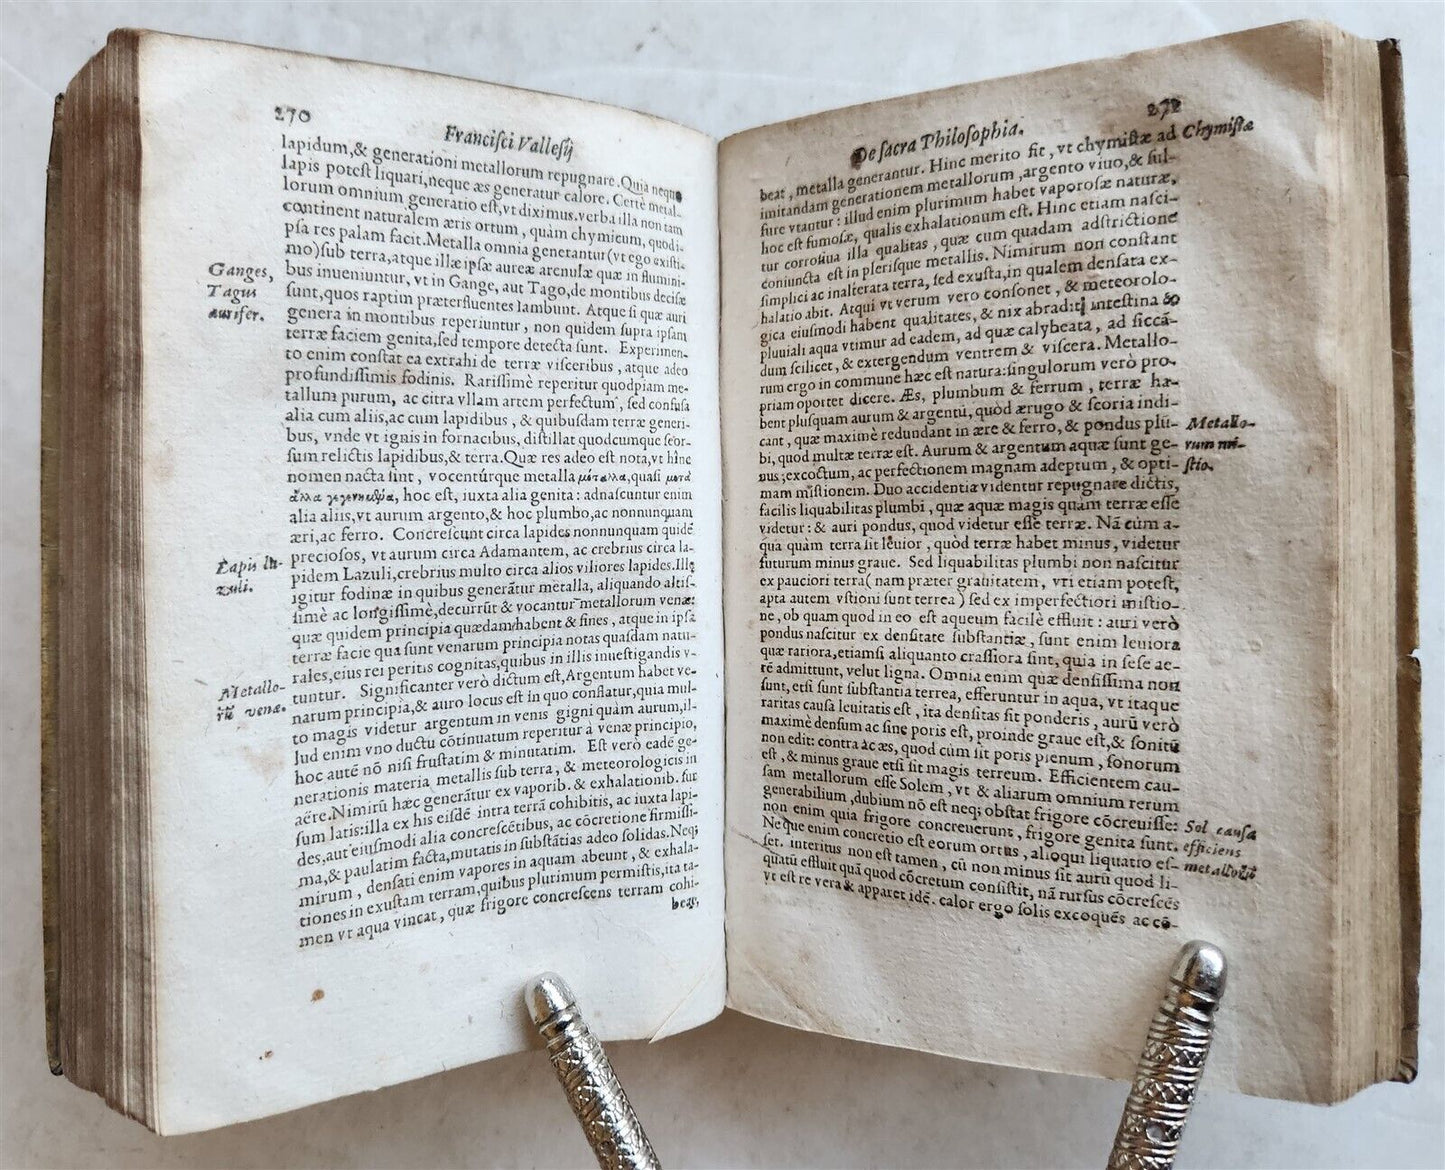 270
Franciſci Valleſij
lapidum,& generationi metallorum repugnare. Quia neque
lapis poteſt liquari,neque æs generatur calore. Certè metal-
lorum omnium generatio eſt,vt diximus.verba illa non tam
continent naturalem æris ortum, quàm chymicum, quod i-
pſa res palam facit.Metalla omnia generantur(vt ego exiſti-
mo)ſub terra,atque illæ ipſæ aureæ arenulæ quæ in flumini-
bus inueniuntur, vt in Gange, aut Tago,de montibus deciſæ
ſunt,quos raptim præterfluentes lambunt. Atque ſi quæ auri
genera in montibus reperiuntur, non quidem ſupra ipſam
terræ faciem genita,ſed tempore detecta ſunt. Experimen-
to enim conſtat ea extrahi de terræ viſceribus, atque adeo
profundiſſimis fodinis. Rariſſimè reperitur quodpiam me-
tallum purum, ac citra vllam artem perfectum, ſed confuſa
alia cum aliis,ac cum lapidibus, & quibuſdam terræ generi-
bus, vnde vt ignis in fornacibus, diſtillat quodcumque ſeor-
ſum relictis lapidibus,& terra.Quæ res adeo eſt nota,vt hinc
nomen nacta ſint, vocentúrque metalla μέταλλα,quaſi μετὰ
ἄλλα γεγενημένα, hoc eſt, iuxta alia genita: adnaſcuntur enim
alia aliis,vt aurum argento,& hoc plumbo,ac nonnunquam
æri,ac ferro. Concreſcunt circa lapides nonnunquam quidē
precioſos, vt aurum circa Adamantem, ac crebrius circa la-
pidem Lazuli,crebrius multo circa alios viliores lapides.Illę
igitur fodinæ in quibus generātur metalla, aliquando altiſ-
ſimè ac longiſſimè,decurrūt & vocantur metallorum venæ:
quæ quidem principia quædam habent & fines, atque in ipſa
terræ facie qua ſunt venarum principia notas quaſdam natu-
rales,eius rei peritis cognitas,quibus in illis inueſtigandis v-
tuntur. Significanter verò dictum eſt,Argentum habet ve-
narum principia,& auro locus eſt in quo conflatur,quia mul-
to magis videtur argentum in venis gigni quàm aurum,il-
lud enim vno ductu cōtinuatum reperitur à venæ principio,
hoc autē nō niſi fruſtatim & minutatim. Eſt verò eadē ge-
nerationis materia metallis ſub terra, & meteorologicis in
aëre.Nimirū hæc generātur ex vaporib. & exhalationib. ſur
ſum latis:illa ex his eiſdē intra terrā cohibitis, ac iuxta lapi-
des,aut eiuſmodi alia concreſcētibus, ac cōcretione firmiſſi-
ma,& paulatim facta,mutatis in ſubſtātias adeo ſolidas.Neq;
mirum, denſati enim vapores in aquam abeunt, & exhala-
tiones in exuſtam terram,quibus plurimum permiſtis,ita ta-
men vt aqua vincat, quæ frigore concreſcens terram cohi-
beat,
Ganges,
Tagus
aurifer.
Lapis la-
zuli.
Metallo-
rū venæ.
De ſacra Philoſophia.
beat, metalla generantur. Hinc merito fit, vt chymiſtæ ad
imitandam generationem metallorum,argento viuo,& ſul-
fure vtantur: illud enim plurimum habet vaporoſæ naturæ,
hoc eſt fumoſæ, qualis exhalationum eſt. Hinc etiam naſci-
tur corroſiua illa qualitas, quæ cum quadam adſtrictione
coniuncta eſt in pleriſque metallis. Nimirum non conſtant
ſimplici ac inalterata terra, ſed exuſta,in qualem denſata ex-
halatio abit. Atqui vt verum vero conſonet, & meteorolo-
gica eiuſmodi habent qualitates, & nix abradit inteſtina &
pluuiali aqua vtimur ad eadem, ad quæ calybeata, ad ſiccā-
dum ſcilicet, & extergendum ventrem & viſcera. Metallo-
rum ergo in commune hæc eſt natura:ſingulorum verò pro-
priam oportet dicere. Æs, plumbum & ferrum, terræ ha-
bent pluſquam aurum & argentū, quòd ærugo & ſcoria indi-
cant, quæ maximè redundant in ære & ferro,& pondus plū-
bi, quod multæ terræ eſt. Aurum & argentum aquæ ſunt ge-
nus;excoctum, ac perfectionem magnam adeptum, & opti-
mam miſtionem. Duo accidentia videntur repugnare dictis,
facilis liquabilitas plumbi, quæ aquæ magis quàm terræ eſſe
videtur: & auri pondus, quod videtur eſſe terræ. Nā cùm a-
qua quàm terra ſit leuior, quòd terræ habet minus, videtur
futurum minus graue. Sed liquabilitas plumbi non naſcitur
ex pauciori terra( nam præter grauitatem, vri etiam poteſt,
apta autem vſtioni ſunt terrea) ſed ex imperfectiori miſtio-
ne, ob quam quod in eo eſt aqueum facilè effluit: auri verò
pondus naſcitur ex denſitate ſubſtantiæ, ſunt enim leuiora
quæ rariora,etiamſi aliquanto craſſiora ſint, quia in ſeſe ae-
rē admittunt, velut ligna. Omnia enim quæ denſiſſima non
ſunt, etſi ſunt ſubſtantia terrea, efferuntur in aqua, vt itaque
raritas cauſa leuitatis eſt, ita denſitas ſit ponderis, aurū verò
maximè denſum ac ſine poris eſt, proinde graue eſt,& ſonitū
non edit: contra ac æs, quod cùm ſit poris plenum, ſonorum
eſt, & minus graue etſi ſit magis terreum. Efficientem cau-
ſam metallorum eſſe Solem, vt & aliarum omnium rerum
generabilium,dubium nō eſt neq; obſtat frigore cōcreuiſſe:
non enim quia frigore concreuerunt, frigore genita ſunt.
Neque enim concretio eſt eorum ortus, alioqui liquatio eſ-
ſet. interitus non eſt tamen, cū non minus ſit aurū quod li-
quatū effluit quā quod cōcretum conſiſtit, nā rurſus cōcreſcēs
vt eſt re vera & apparet idē. calor ergo ſolis excoquēs ac cō-
Chymiſtæ
Metallo-
rum mi-
ſtio.
Sol cauſa
efficiens
metallorū